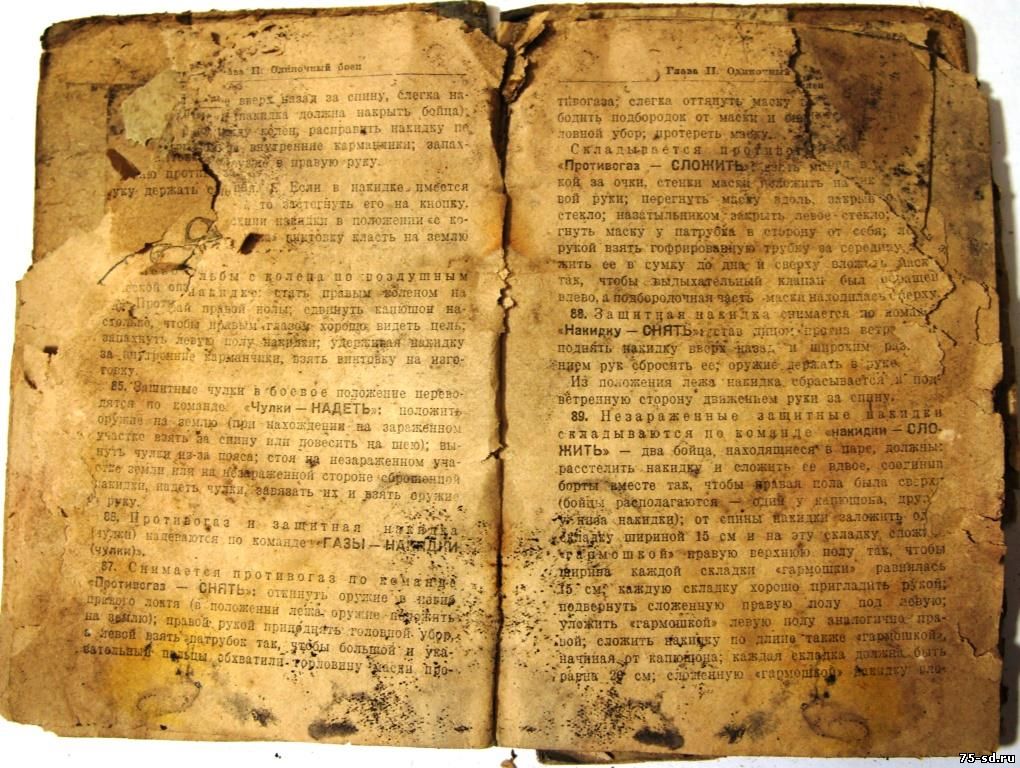 Глава II. Одиночный боец
вверх назад за спину, слегка на-
накидка должна накрыть бойца);
колен, расправить накидку по
внутренние кармашки; запах-
в правую руку.
руку держать Если в накидке имеется
то застегнуть его на кнопку.
накидки в положении «с ко-
винтовку класть на землю
льбы с колена по воздушным
накидке: стать правым коленом на
край правой полы; сдвинуть капюшон на-
столько, чтобы правым глазом хорошо видеть цель;
запахнуть левую полу накидки; удерживая накидку
за внутренние карманчики, взять винтовку на изго-
товку.
85. Защитные чулки в боевое положение перево-
дятся по команде «Чулки — НАДЕТЬ»: положить
оружие на землю (при нахождении на зараженном
участке взять за спину или повесить на шею); вы-
нуть чулки из-за пояса; стоя на незараженном уча-
стке земли или на незараженной стороне сброшенной
накидки, надеть чулки, завязать их и взять оружие
руку.
86. Противогаз и защитная накидка
(чулки) надеваются по команде «ГАЗЫ — НАКИДКИ
(чулки)».
87. Снимается противогаз по команде
«Противогаз — СНЯТЬ»: откинуть оружие в изгиб
правого локтя (в положении лежа оружие положить
на землю); правой рукой приподнять головной убор,
а левой взять патрубок так, чтобы большой и ука-
зательный пальцы обхватили горловину маски про-
Глава II. Одиночный
тивогаза; слегка оттянуть маску
бодить подбородок от маски и
ловной убор; протереть маску.
Складывается противогаз
«Противогаз — СЛОЖИТЬ»: взять
кой за очки, стенки маски положить на
вой руки; перегнуть маску вдоль, закрыв
стекло; назатыльником закрыть левое стекло;
гнуть маску у патрубка в сторону от себя;
рукой взять гофрированную трубку за середину,
жить ее в сумку до дна и сверху вложить маску
так, чтобы выдыхательный клапан был обращен
влево, а подбородочная часть маски находилась сверху.
88. Защитная накидка снимается по команде
«Накидку — СНЯТЬ»: став лицом против ветра
поднять накидку вверх назад и широким раз-
нием рук сбросить ее; оружие держать в руке.
Из положения лежа накидка сбрасывается в под-
ветренную сторону движением руки за спину.
89. Незараженные защитные накидки
складываются по команде «накидки — СЛО-
ЖИТЬ» — два бойца, находящиеся в паре, должны:
расстелить накидку и сложить ее вдвое, соединив
борты вместе так, чтобы правая пола была сверху
(бойцы располагаются — один у капюшона, друг
у низа накидки); от спины накидки заложить од
складку шириной 15 см и на эту складку сложить
«гармошкой» правую верхнюю полу так, чтобы
ширина каждой складки «гармошки» равнялась
15 см; каждую складку хорошо пригладить рукой;
подвернуть сложенную правую полу под левую;
уложить «гармошкой» левую полу аналогично пра-
вой; сложить накидку по длине также «гармошкой»,
начиная от капюшона; каждая складка должна быть
равна 20 см; сложенную «гармошкой» накидку вло-
75-sd.ru